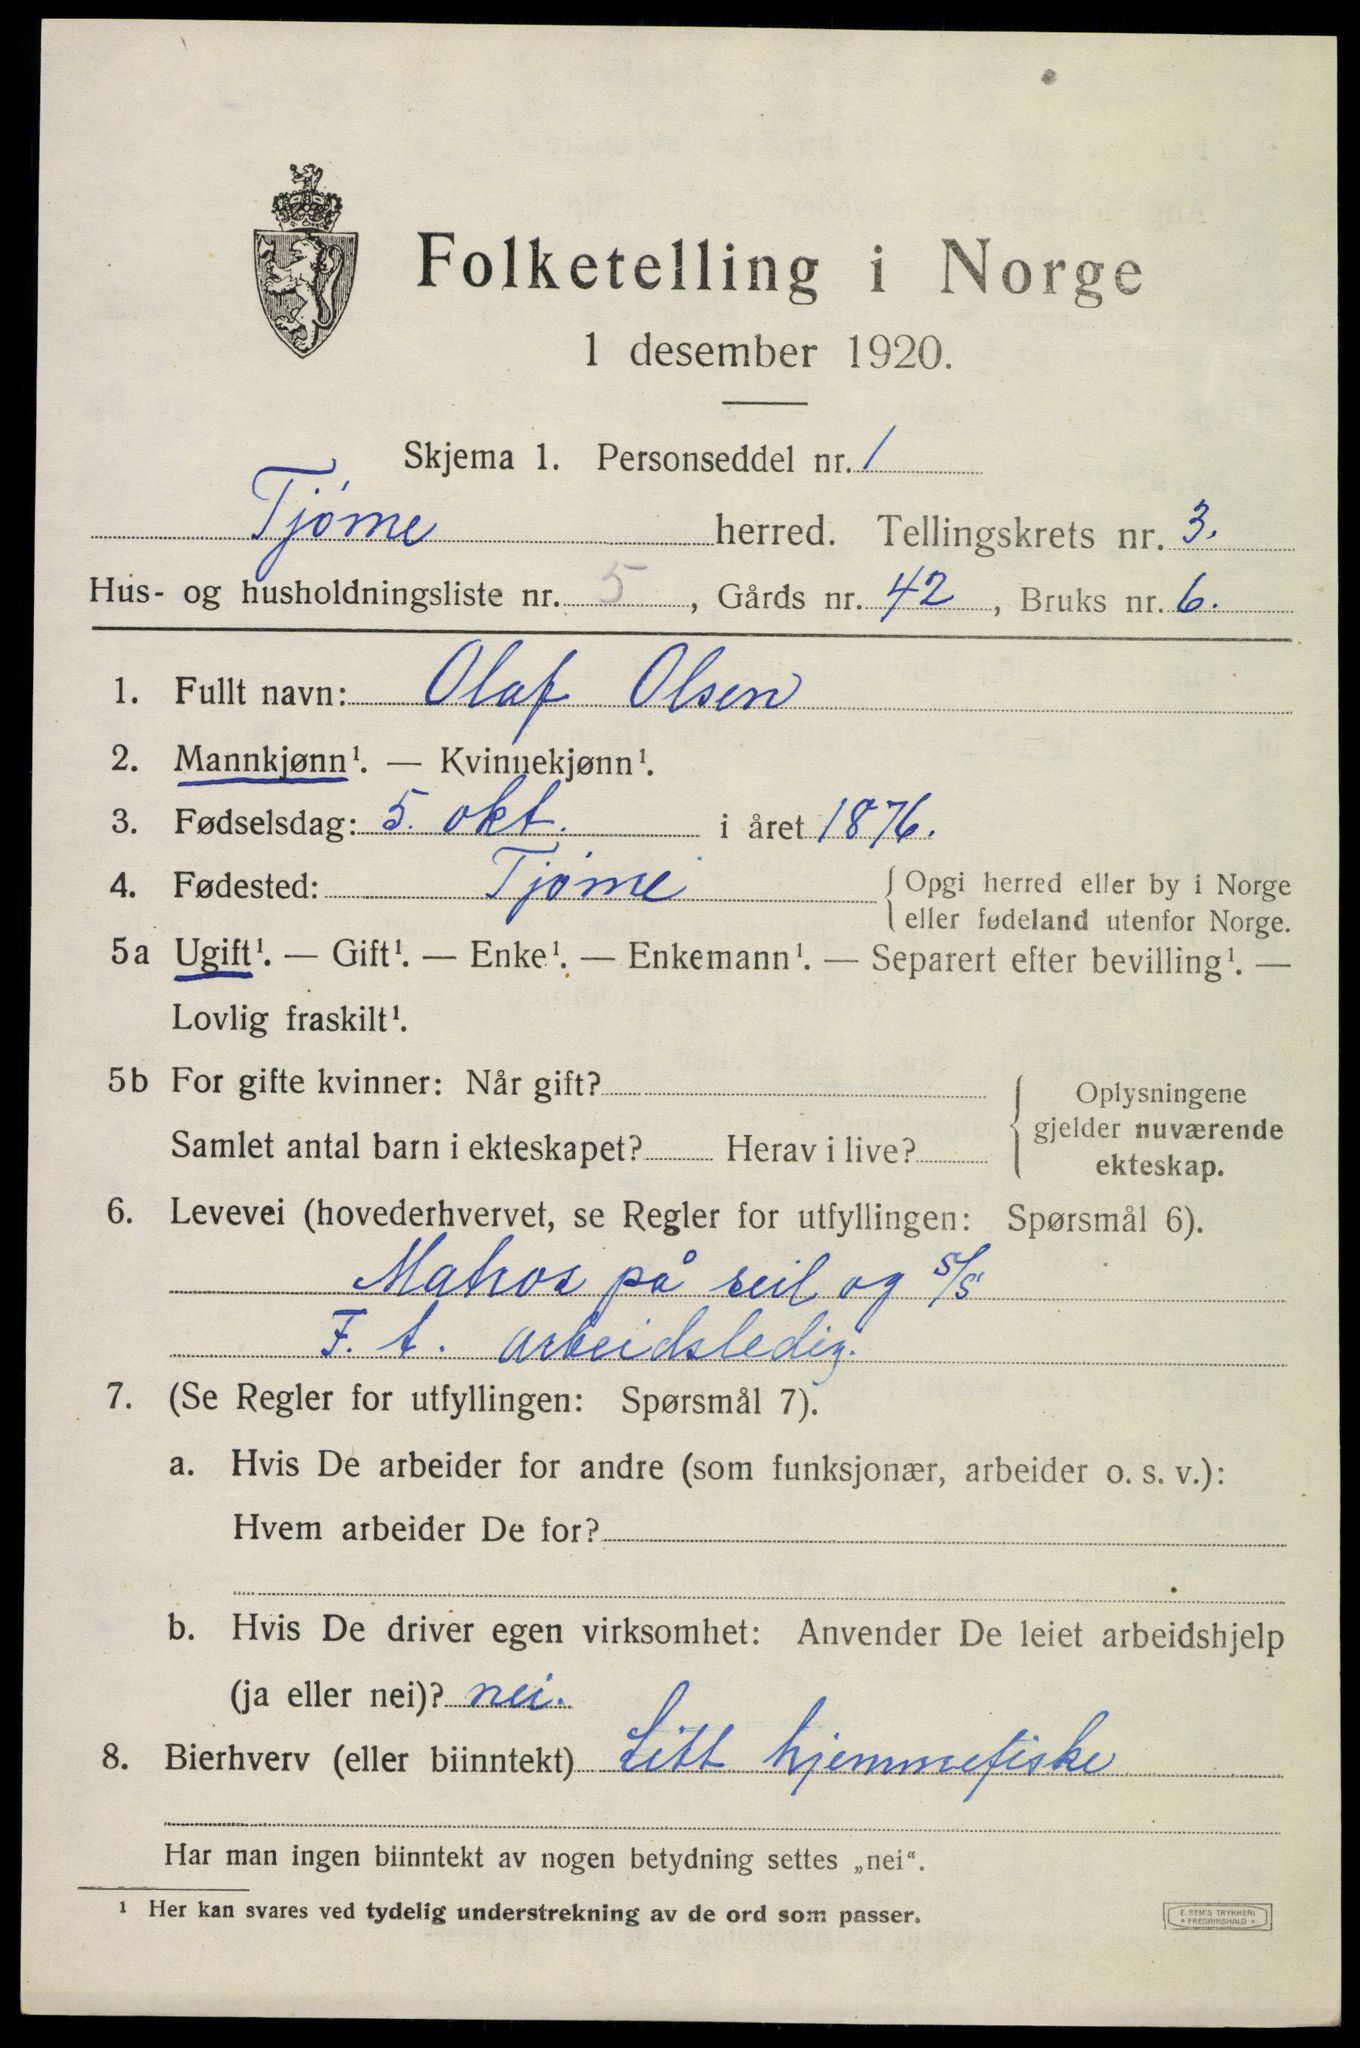 Folketelling i Norge
1 desember 1920.
Skjema 1. Personseddel nr. 1
Tjøme herred. Tellingskrets nr. 3.
Hus- og husholdningsliste nr. 5, Gårds nr. 42, Bruks nr. 6.
1. Fullt navn: Olaf Olsen
2. Mannkjønn¹. — Kvinnekjønn¹.
3. Fødselsdag: 5. okt. i året 1876.
4. Fødested: Tjøme { Opgi herred eller by i Norge
eller fødeland utenfor Norge.
5a Ugift¹. — Gift¹. — Enke¹. — Enkemann¹. — Separert efter bevilling¹. —
Lovlig fraskilt¹.
5b For gifte kvinner: Når gift? { Oplysningene
gjelder nuværende
Samlet antal barn i ekteskapet? Herav i live? ekteskap.
6. Levevei (hovederhvervet, se Regler for utfyllingen: Spørsmål 6).
Matros på seil og s/s
F. t. arbeidsledig.
7. (Se Regler for utfyllingen: Spørsmål 7).
a. Hvis De arbeider for andre (som funksjonær, arbeider o. s. v.):
Hvem arbeider De for?
b. Hvis De driver egen virksomhet: Anvender De leiet arbeidshjelp
(ja eller nei)? nei.
8. Bierhverv (eller biinntekt) Litt hjemmefiske
Har man ingen biinntekt av nogen betydning settes „nei“.
¹ Her kan svares ved tydelig understrekning av de ord som passer.
E. SEM'S TRYKKERI
FREDRIKSHALD